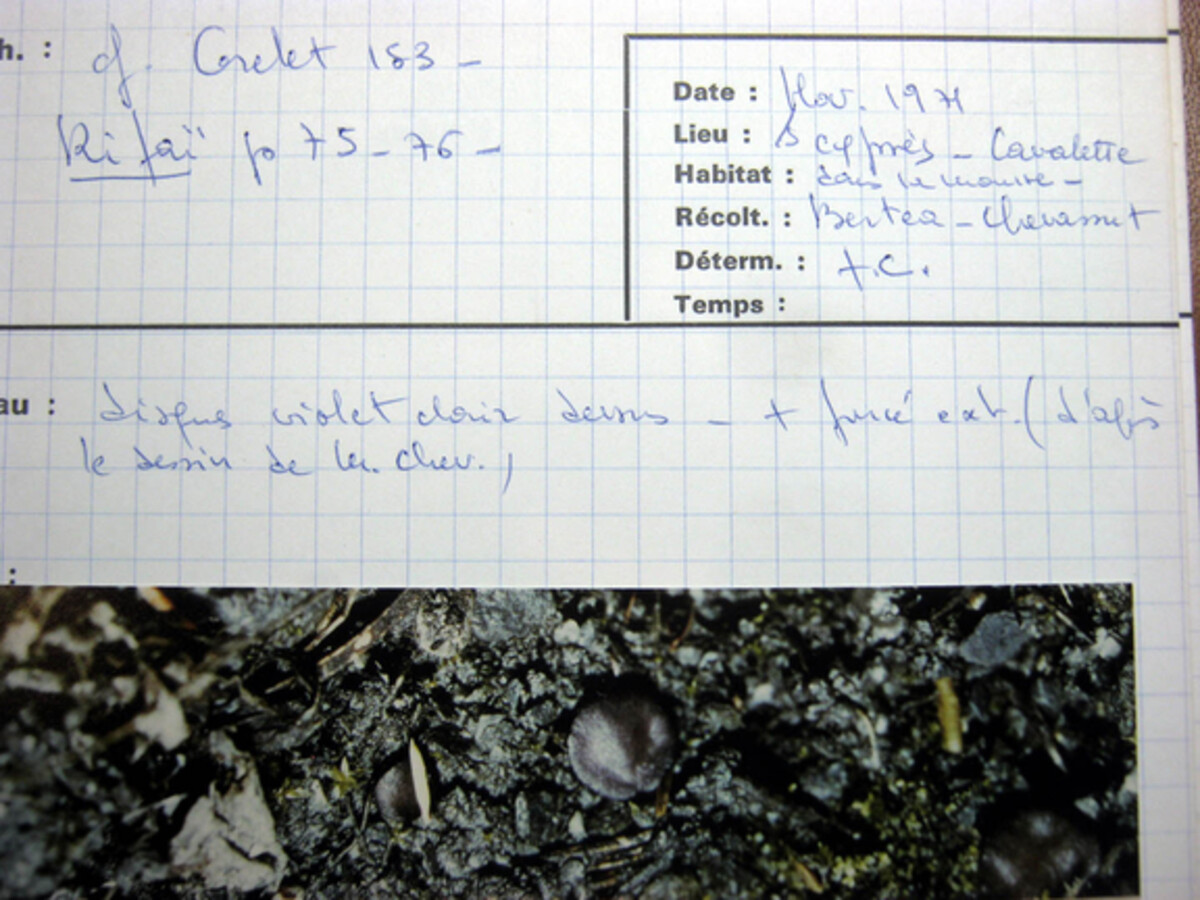 h. : cf. Corelet 183 -
Rifaï p 75 - 76 -
Date : Nov. 1971
Lieu : S cyprès - Cavalette
Habitat : dans la mousse -
Récolt. : Bertea - Chevassut
Déterm. : F.C.
Temps :
au : disque violet clair dessus - + foncé ext. ( d'après
le dessin de M. Chev. )
: